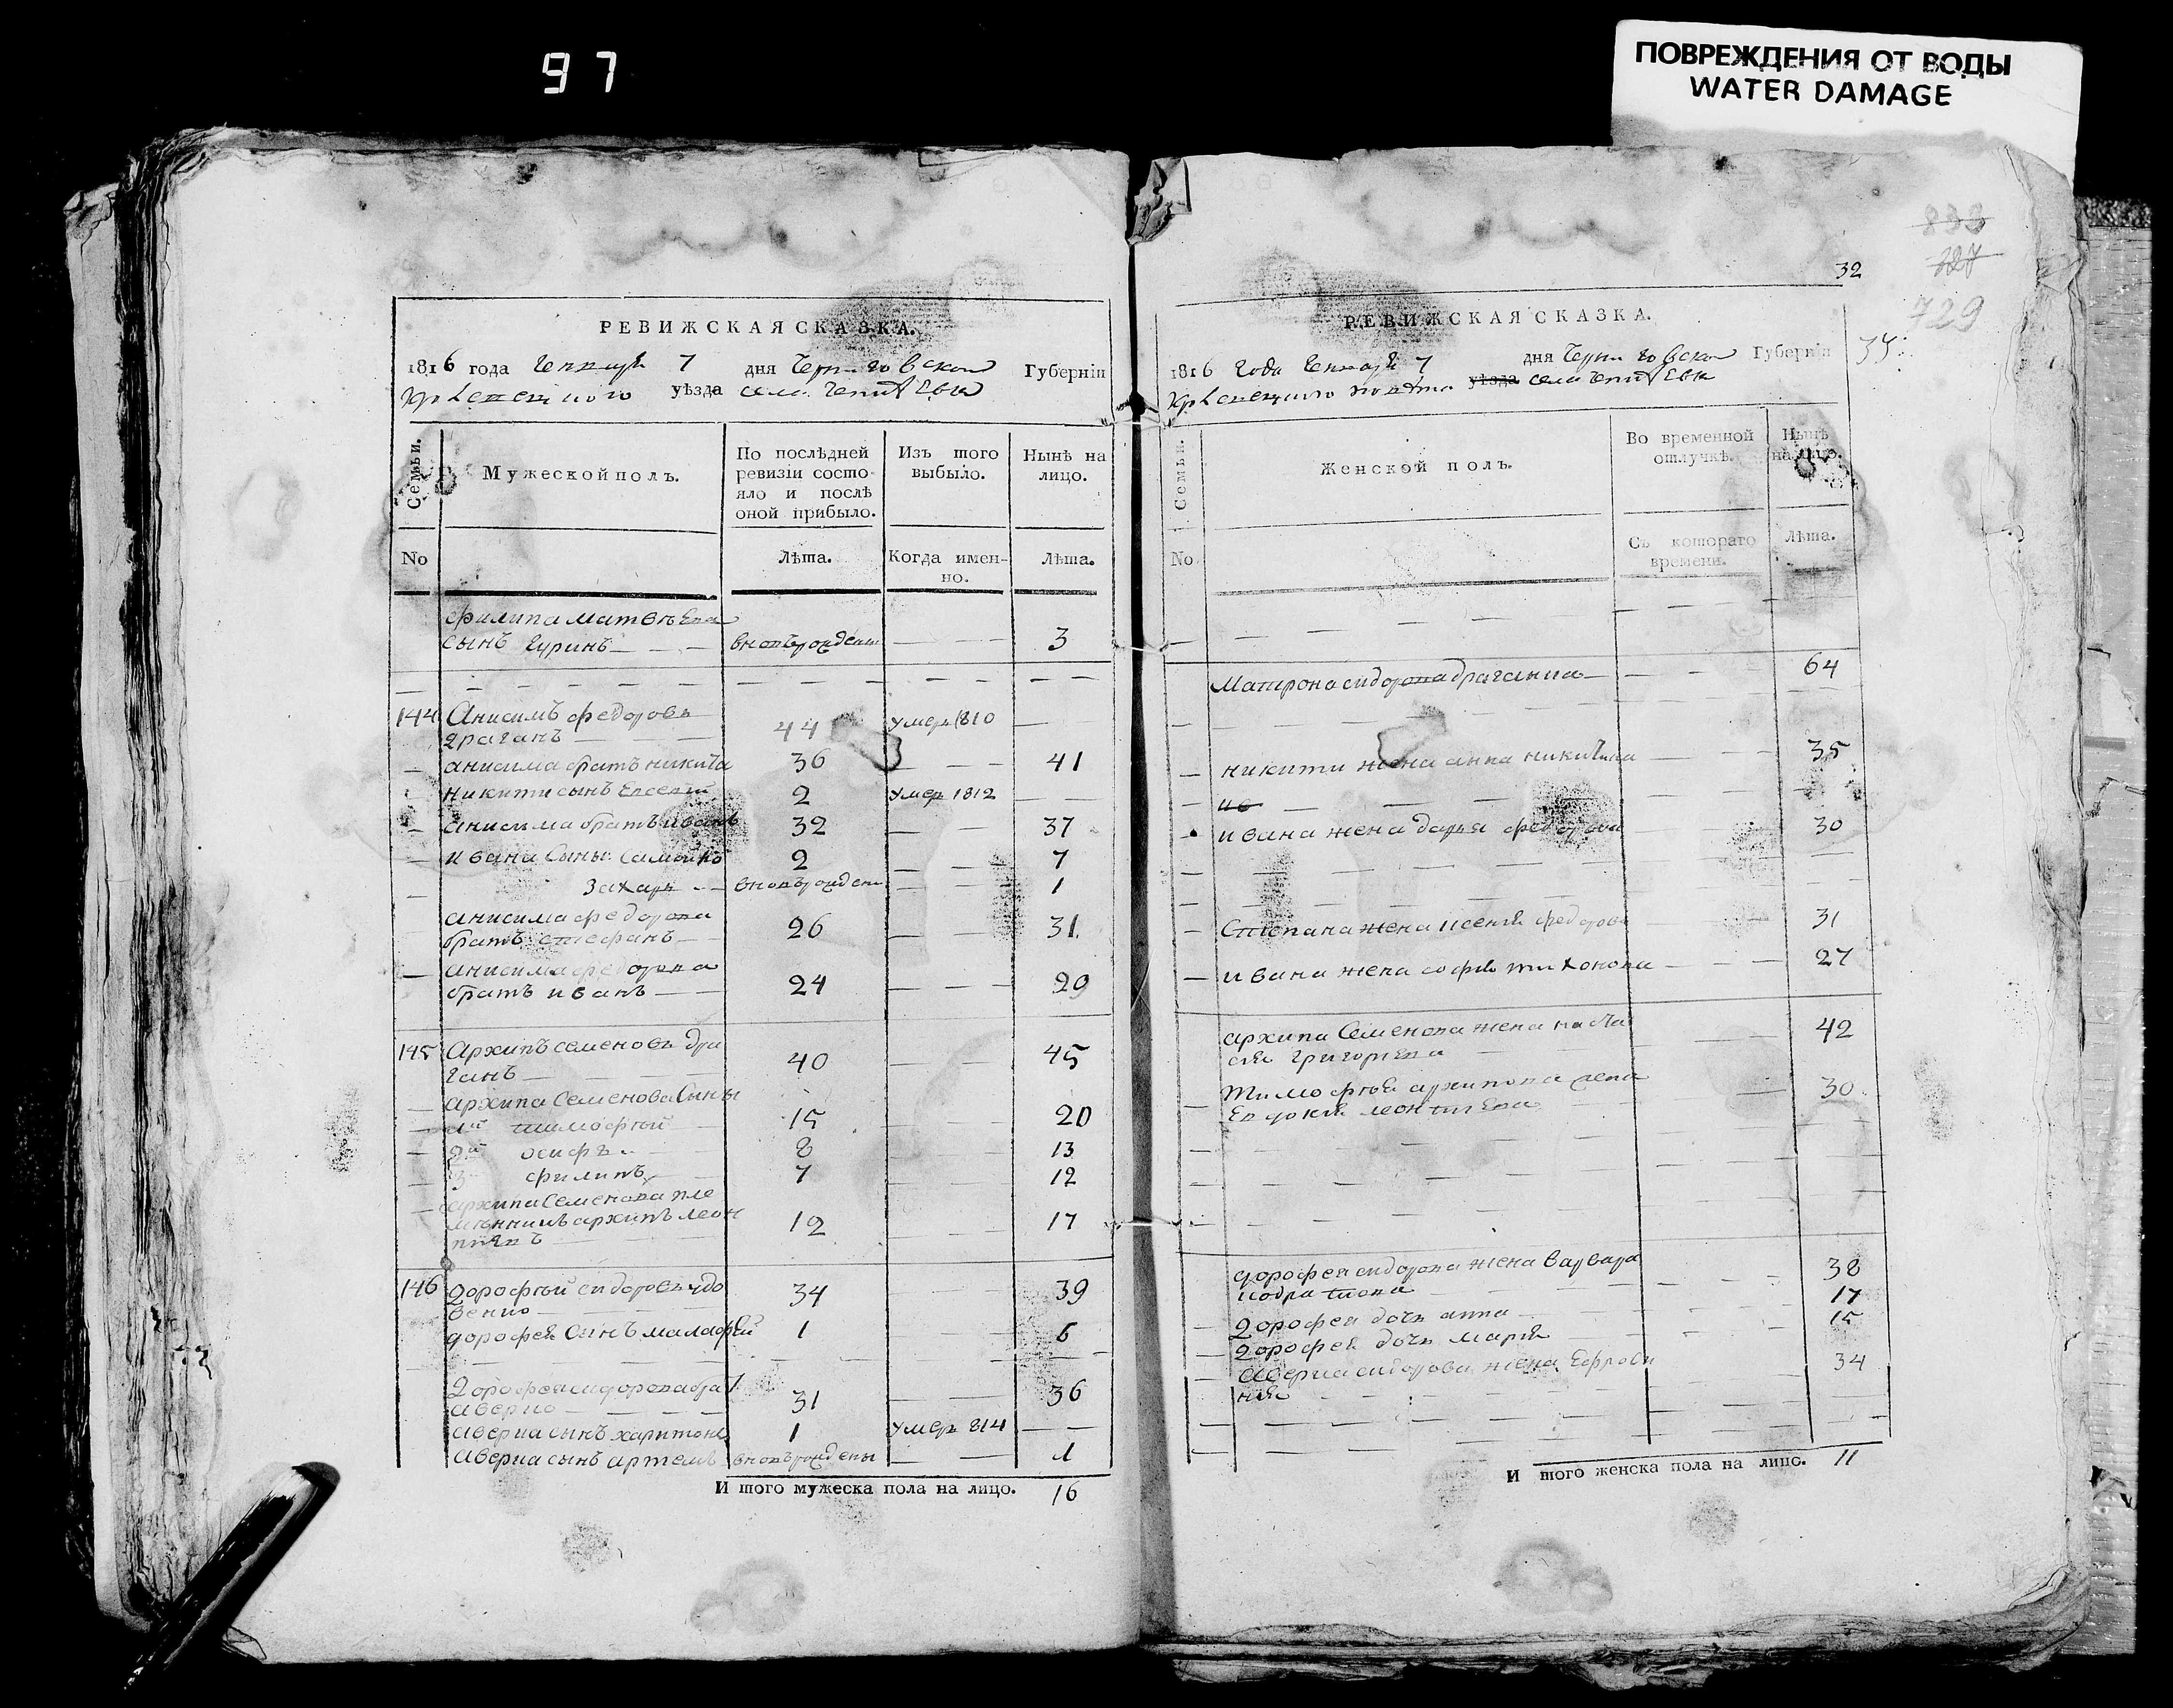 97
ПОВРЕЖДЕНИЯ ОТ ВОДЫ
WATER DAMAGE
РЕВИЖСКАЯ СКАЗКА.
1816 года Генваря 7 дня Черниговской Губерніи
уѣзда села
Семьи.
Мужеской полъ.
По послѣдней ревизіи состояло и послѣ оной прибыло.
Изъ того выбыло.
Нынѣ на лицо.
No
Лѣта.
Когда именно.
Лѣта.
Филипа Матвѣева
сынъ Гуринъ вновьрожденъ 3
144 Анисимъ Федоровъ
Драганъ 44 умеръ 1810
анисима братъ никита 36 41
никити сынъ 2 умеръ 1812
анисима братъ иванъ 32 37
ивана сыны Самойло 2 7
Захаръ вновьрожден 1
анисима федорова
братъ стефанъ 26 31
анисима федорова
братъ иванъ 24 29
145 Архипъ Семеновъ Дра
ганъ 40 45
архипа Семенова Сыны
1й тимофѣй 15 20
2й осифъ 8 13
3 филипъ 7 12
архипа Семенова пле
мѣнникъ архипъ леон
тіевъ 12 17
146 Дорофѣй сидоровъ Удо
венко 34 39
дорофея Сынъ малафѣй 1 6
Дорофея сидорова брат
аверко 31 36
аверка сынъ харитонъ 1 умеръ 814
аверка сынъ артемъ вновьрождены 1
И того мужеска пола на лицо. 16
32
833
729
РЕВИЖСКАЯ СКАЗКА.
1816 года Генваря 7 дня Черниговской Губерніи
повѣта уѣзда села
Семьи.
Женской полъ.
Во временной отлучкѣ.
Нынѣ на лицо.
No
Съ котораго времени.
Лѣта.
Матрона сидорова драганка 64
никити жена анна никитина 35
ивана жена дарья федорова 30
Степана жена ксенія федорова 31
ивана жена софія тихонова 27
архипа Семенова жена наста
сія григоріева 42
тимофѣя архипова жена
Евдокія леонтіева 30
дорофея сидорова жена варвара
кодратова 38
дорофея дочъ анна 17
дорофея дочъ марія 15
аверка сидорова жена Ефроси
нія 34
И того женска пола на лицо. 11